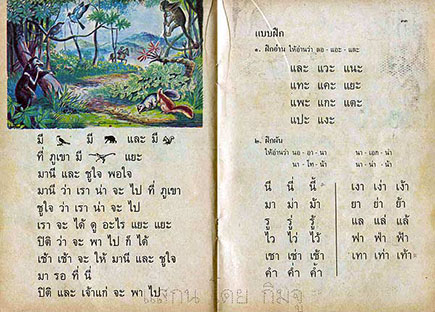 มี มี และ มี
ที่ ภูเขา มี แยะ
มานี และ ชูใจ พอใจ
มานี ว่า เรา น่า จะ ไป ที่ ภูเขา
ชูใจ ว่า เรา น่า จะ ไป
เรา จะ ได้ ดู อะไร แยะ แยะ
ปิติ ว่า จะ พา ไป ก็ ได้
เช้า เช้า จะ ให้ มานี และ ชูใจ
มา รอ ที่ นี่
ปิติ และ เจ้าแก่ จะ พา ไป
๓๓
แบบฝึก
๑. ฝึกอ่าน ให้อ่านว่า ลอ - แอะ - และ
และ แวะ แนะ
แทะ แคะ แยะ
แพะ แกะ แตะ
แปะ แงะ
๒. ฝึกผัน
ให้อ่านว่า นอ - อา - นา นา - เอก - น่า
นา - โท - น้า นา - น่า - น้า
นี นี่ นี้ เงา เง่า เง้า
มา ม่า ม้า ยา ย่า ย้า
รู รู่ รู้ แล แล่ แล้
ไว ไว่ ไว้ ฟา ฟ่า ฟ้า
เชา เช่า เช้า เทา เท่า เท้า
คำ ค่ำ ค้ำ
สแกน โดย กิมจู